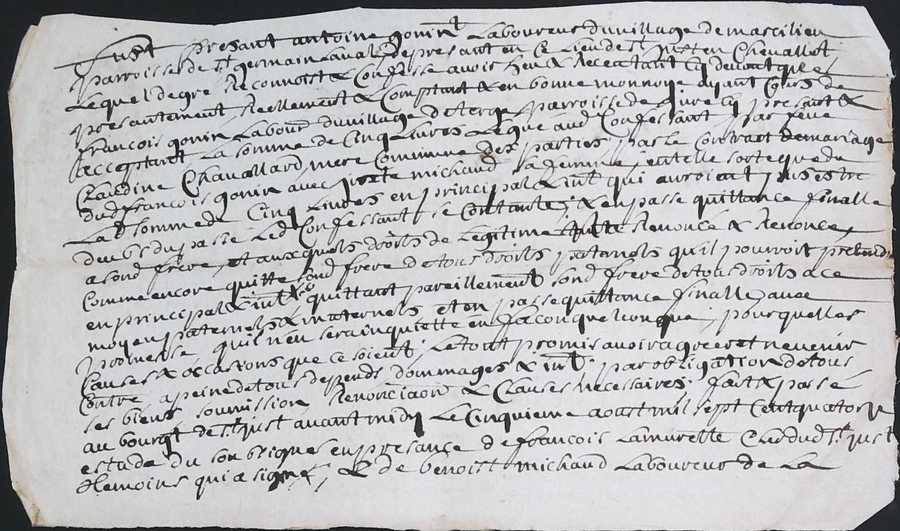 Fust presant antoine gonin Laboureur du village de marcilieu
parroisse de st germain Laval de presant en Ce Lieu de st Just en Chevallet
Lequel de gre Reconnoist & Confesse avoir heu & Receu tant cy devant que
presantement Reellement & Comptant & en bonne monnoye ayant Cours de
francois gonin Labour du village de parroisse de cy presant &
acceptant La somme de Cinq Livres Leguée aud Confessant par feue
Claudine Chavallard mere Commune des parties par le Contract de mariage
dud francois gonin avec michaud sa femme, en telle sorte que de
La d somme de Cinq Livres en principal & int qui auroient pu estre
deubs du passe Led Confessant se Contante, & en passe quittance finalle
a sond frere, et aux quels droits de Legitime Renoncé & Renonce,
Comme encore quitte sond frere de tous droits paternels qu'il pourroit pretendre
en principal & int quittant pareillement sond frere de tous droits a ce
moyen paternels & maternels et en passe quittance finalle avec
promesse qu'il n'en sera inquietté en facon quelconque, pour quelles
Causes & occasions que ce soient, Le tout promis avoir a gre et ne venir
Contre, a peine de tous despends dommages & int. par obligation de tous
ses biens soumission Renonciaon & Clauses necessaires. fait & passé
au bourg de st Just avant midy Le Cinquieme aoust mil sept Cent quatorze
estude du soubsigne en presance de francois Lamurette Clerc dud st Just
temoins qui a signé, & de benoist michaud Laboureur de La